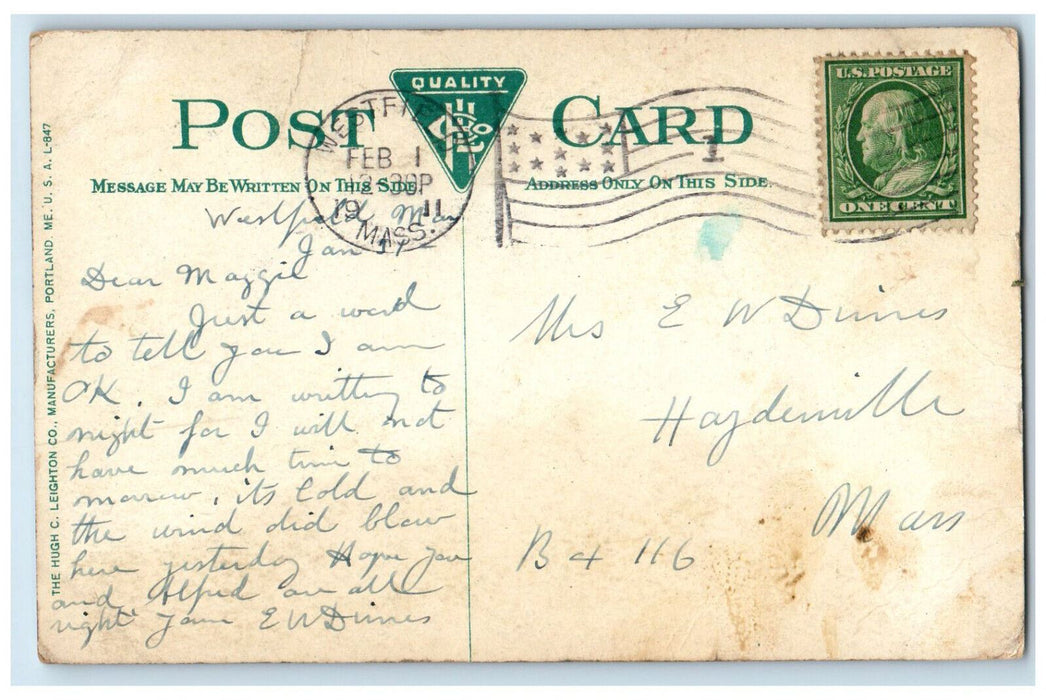 POST CARD
QUALITY
MESSAGE MAY BE WRITTEN ON THIS SIDE.
ADDRESS ONLY ON THIS SIDE.
THE HUGH C. LEIGHTON CO., MANUFACTURERS, PORTLAND, ME. U. S. A. L-847
FEB 1
12-30P
19 11
MASS.
1
U.S. POSTAGE
ONE CENT
Westfield Mass
Jan 31
Dear Maggie
Just a word
to tell you I am
OK. I am writting to
night for I will not
have much time to
morrow, its Cold and
the wind did blow
here yesterday Hope you
and Alfred are all
right E W
Mrs E W
Haydenville
Mass
B 4 116